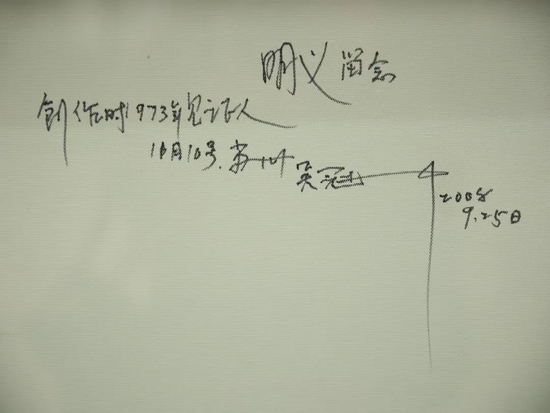 明义 留念
創作时1973年见证人
10月10号.
吴冠中
2008
9.25日